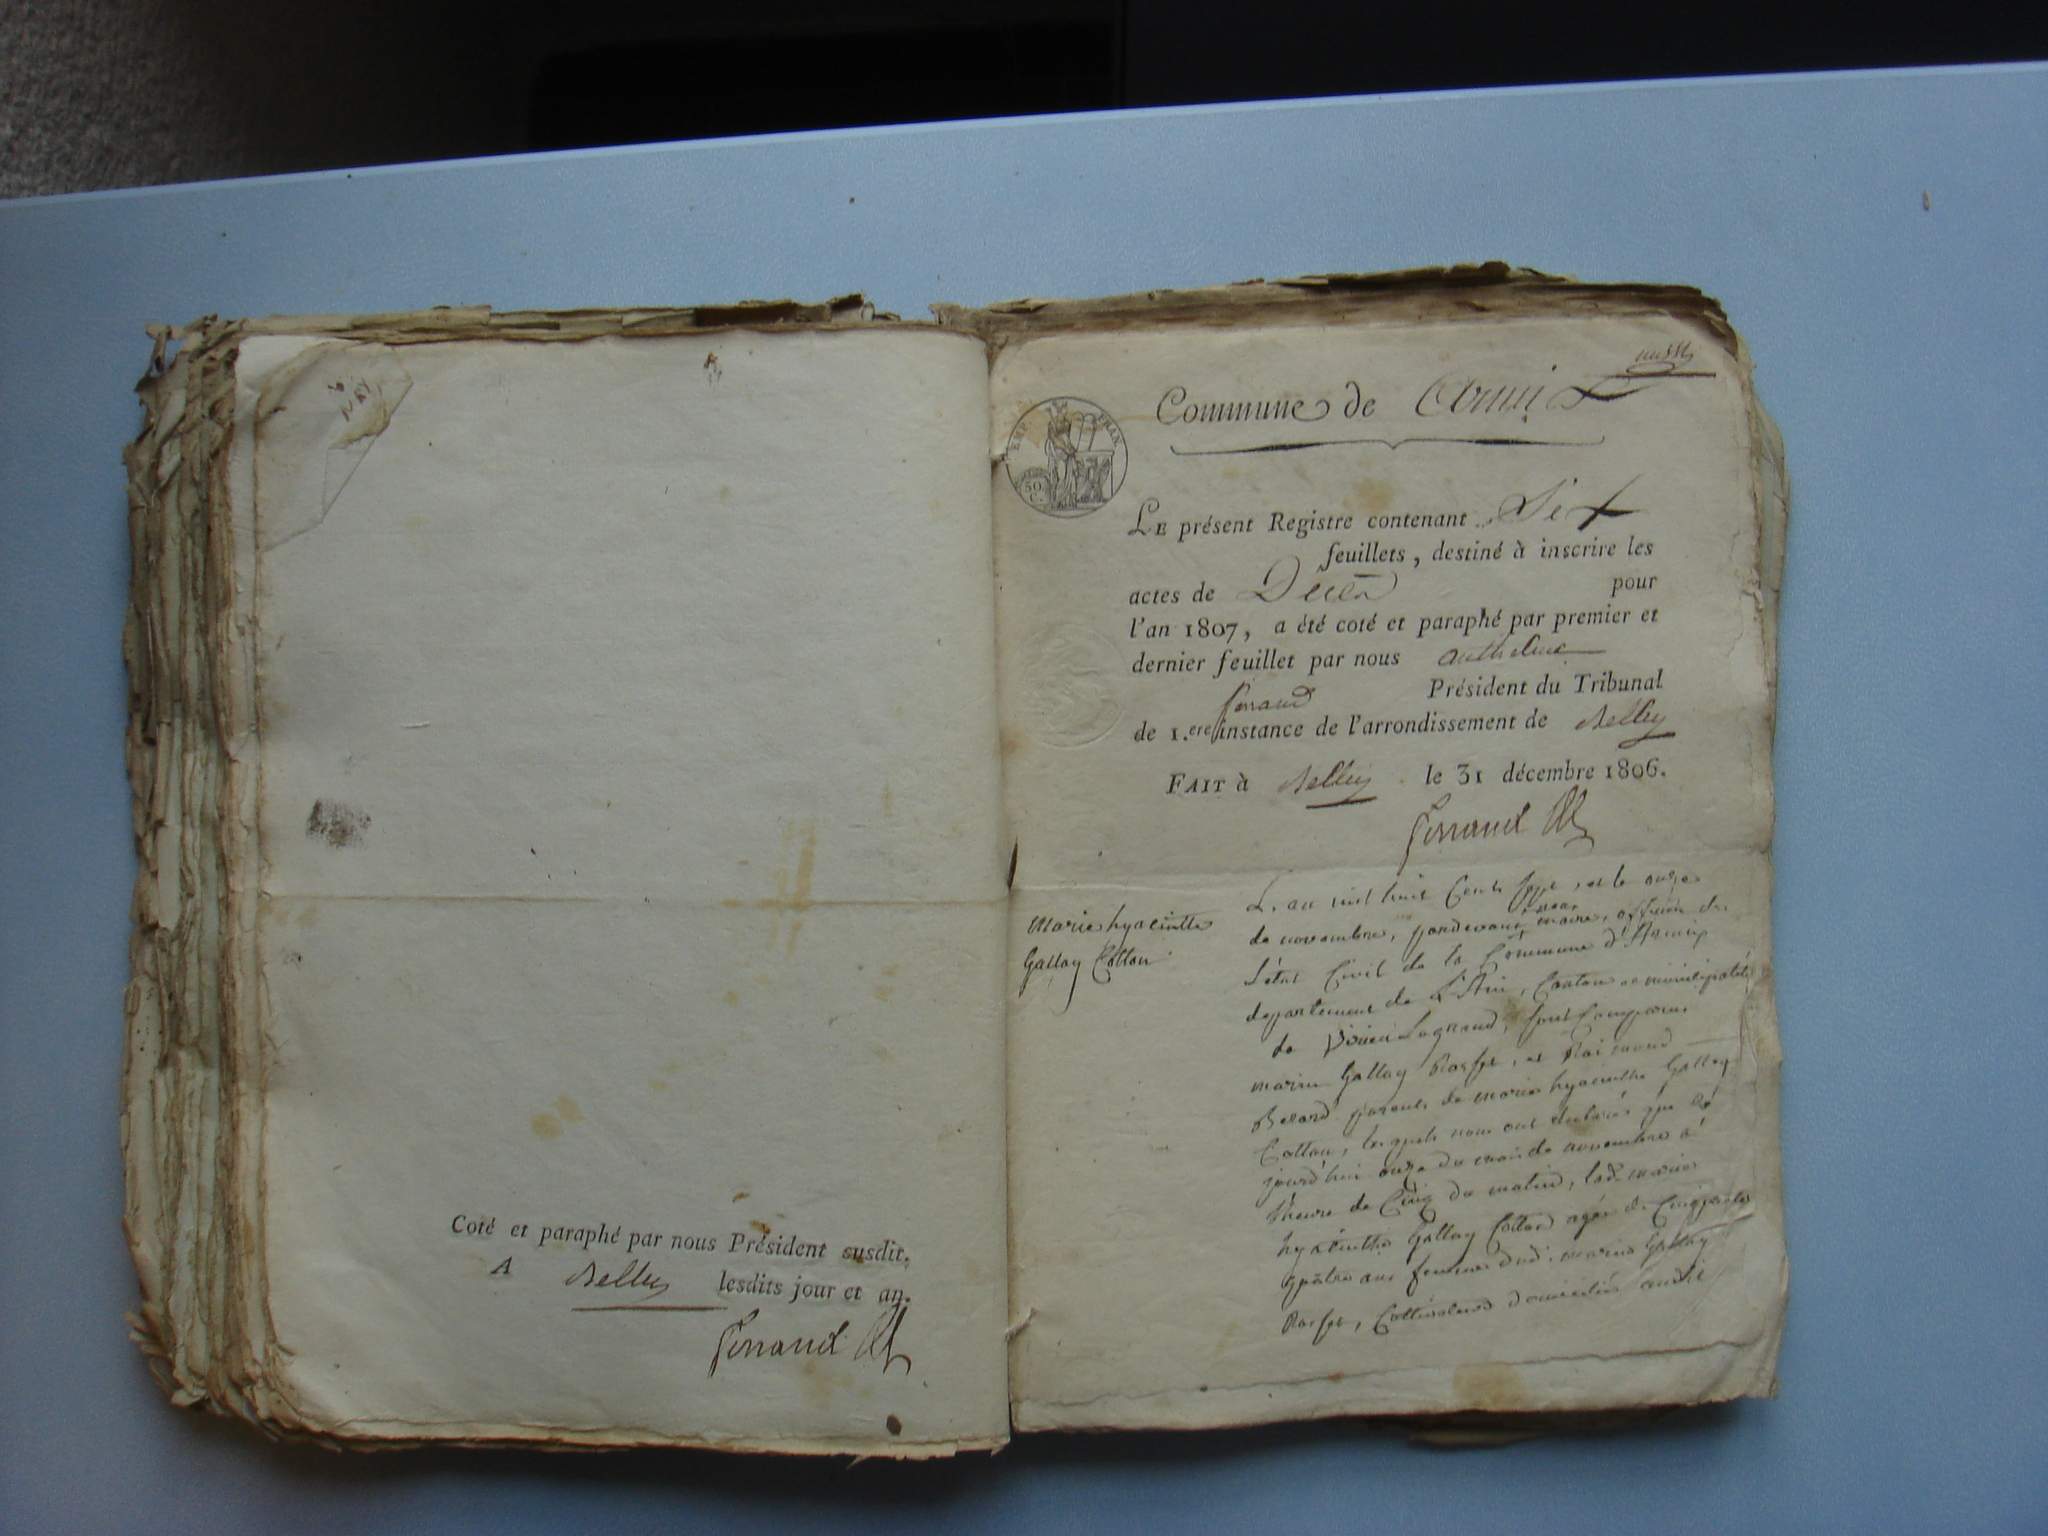 Coté et paraphé par nous Président susdit.
A Belley lesdits jour et an.
ferrand
Commune de
EMP. FRAN.
50 C.
LE présent Registre contenant Six
feuillets, destiné à inscrire les
actes de Décès pour
l'an 1807, a été coté et paraphé par premier et
dernier feuillet par nous anthelme
ferrand Président du Tribunal
de 1.ere instance de l'arrondissement de Belley
FAIT à Belley le 31 décembre 1806.
ferrand
Marie hyacinthe
Gallay Cottau
L'an mil huit Cents sept, et le onze
de novembre, pardevant nous maire, officier de
l'état Civil de la Commune d'
departement de L'Ain, Canton et municipalité
de Virieu Legrand, sont Comparus
marin Gallay Rosset, et Raimond
parents de marie hyacinthe Gallay
Cottau, lesquels nous ont déclarés que ce
jourd'hui onze du mois de novembre à
l'heure de Cinq du matin, lad. marie
hyacinthe Gallay Cottau agée de Cinquante
quatre ans femme dud. marin Gallay
Rosset, Cultivateurs domiciliés audit